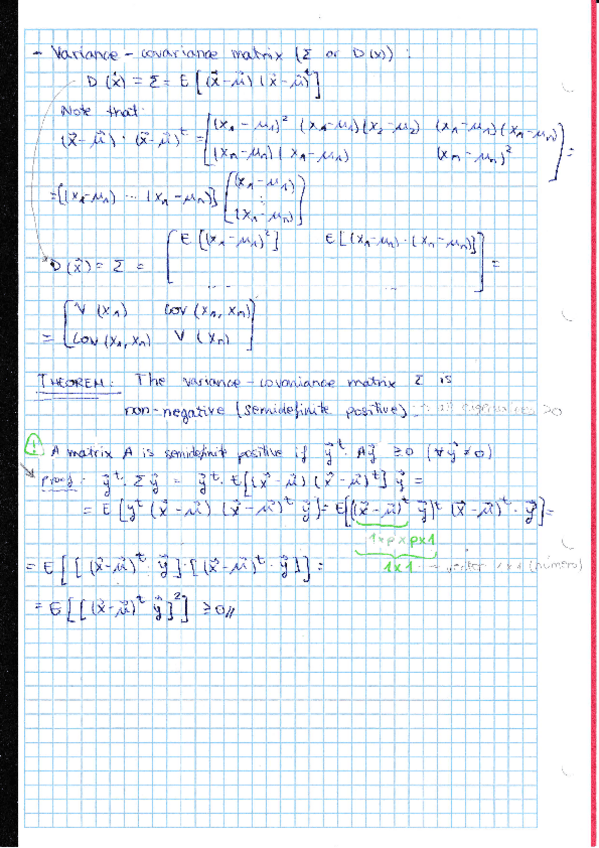 - Variance-covariance matrix (Σ or D(x)) :
D(x⃗) = Σ = E[(x⃗-μ⃗)(x⃗-μ⃗)ᵗ]
Note that:
(x⃗-μ⃗)·(x⃗-μ⃗)ᵗ = [(x₁-μ₁)² (x₁-μ₁)(x₂-μ₂) (x₁-μ₁)(xₙ-μₙ)
(xₙ-μₙ)(x₁-μ₁) (xₙ-μₙ)²] =
= [(x₁-μ₁) ... (xₙ-μₙ)] [(x₁-μ₁)
⋮
(xₙ-μₙ)]
D(x⃗) = Σ = [E[(x₁-μ₁)²] E[(x₁-μ₁)·(xₙ-μₙ)]
... ...] =
= [V(x₁) Cov(x₁,xₙ)
Cov(x₁,xₙ) V(xₙ)]
THEOREM: The variance-covariance matrix Σ is
non-negative (semidefinite positive). all eigenvalues >0
! A matrix A is semidefinite positive if y⃗ᵗ·Ay⃗ ≥0 (∀y⃗≠0)
Proof: y⃗ᵗ·Σy⃗ = y⃗ᵗ·E[(x⃗-μ⃗)(x⃗-μ⃗)ᵗ] y⃗ =
= E[yᵗ(x⃗-μ⃗)(x⃗-μ⃗)ᵗ y⃗] = E[((x⃗-μ⃗)ᵗ y⃗)ᵗ (x⃗-μ⃗)ᵗ·y⃗] =
1xp x px1
1x1 → vector 1x1 (número)
= E[[(x⃗-μ⃗)ᵗ·y⃗]·[(x⃗-μ⃗)ᵗ·y⃗]] =
= E[[(x⃗-μ⃗)ᵗ y⃗]²] ≥0//